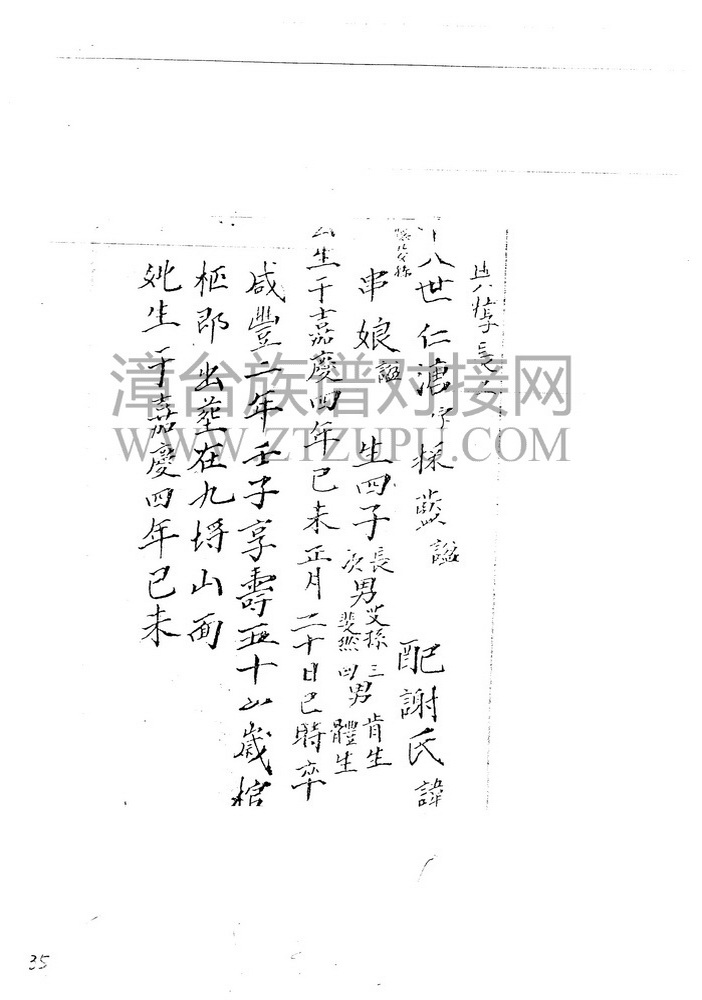 惇長
八世仁溏 採藍諡 配謝氏諱
串娘諡 生四子 長男艾孫 三男肯生
次 斐然 四 體生
生于嘉慶四年己未正月二十日巳時卒
咸豐二年壬子享壽五十 歲棺
柩即出葬在九埒山面
妣生于嘉慶四年己未
漳台族谱对接网
WWW.ZTZUPU.COM
35